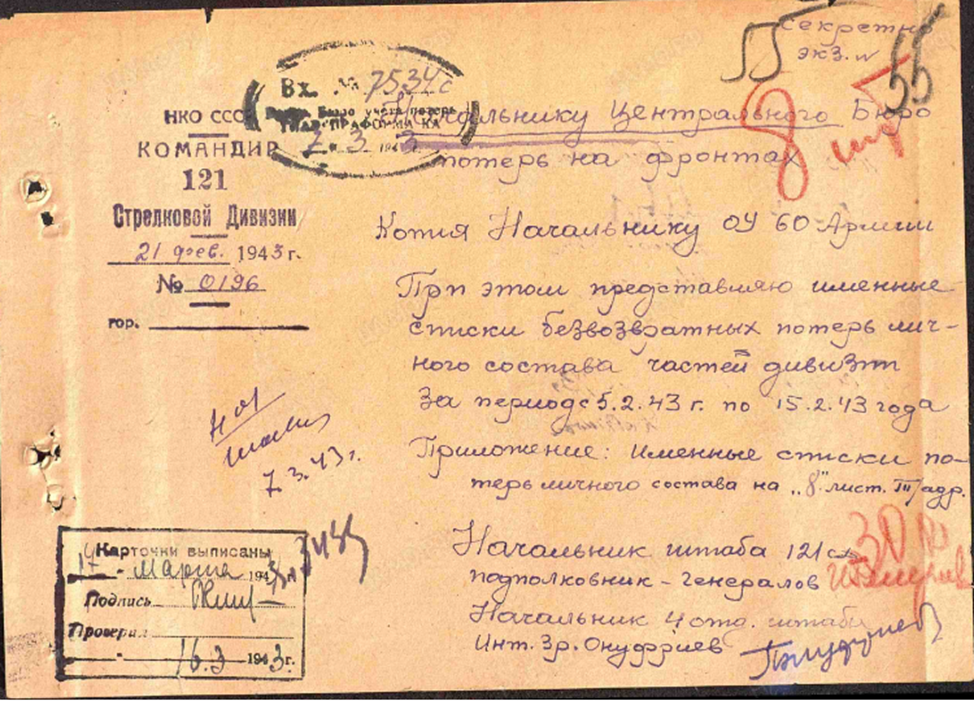 Секретно
экз. №
55
55
Вх. № 7534с
Бюро учета потерь
7 3 1943
НКО СССР
КОМАНДИР
121
Стрелковой Дивизии
21 фев. 1943 г.
№ 0196
гор.
Начальнику Центрального Бюро
потерь на фронтах
8
Копия Начальнику ОУ 60 Армии
При этом представляю именные
списки безвозвратных потерь лич-
ного состава частей дивизии
За период с 5.2.43 г. по 15.2.43 года
Приложение: Именные списки по-
терь личного состава на „8" лист. III/адр.
7.3.43 г.
Карточки выписаны
14 " Марта 1943 г.
Подпись
Проверил
" 16.3 1943 г.
Начальник штаба 121 сд
подполковник - Генералов
30
Начальник 4 отд. штаба
Инт. 3р. Онуфриев